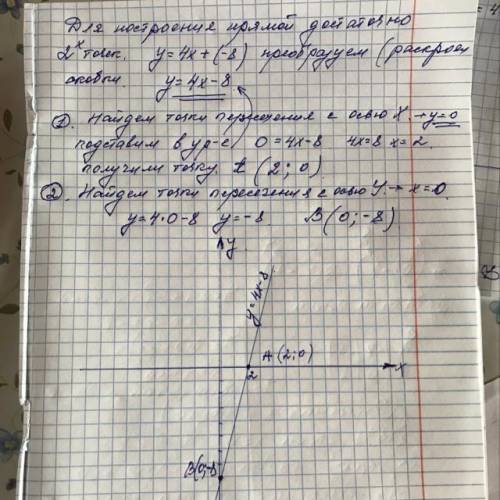 Для построения прямой достаточно
2ˣ точек. y=4x+(-8) преобразуем (раскроем
скобки. y=4x-8
1. Найдем точки пересечения с осью X. → y=0
подставим в ур-е 0=4x-8 4x=8 x=2
получили точку A (2; 0)
2. Найдем точки пересечения с осью У. → x=0.
y=4·0-8 y=-8. B(0; -8)
y
y=4x-8
A(2;0)
2
x
B(0;-8)